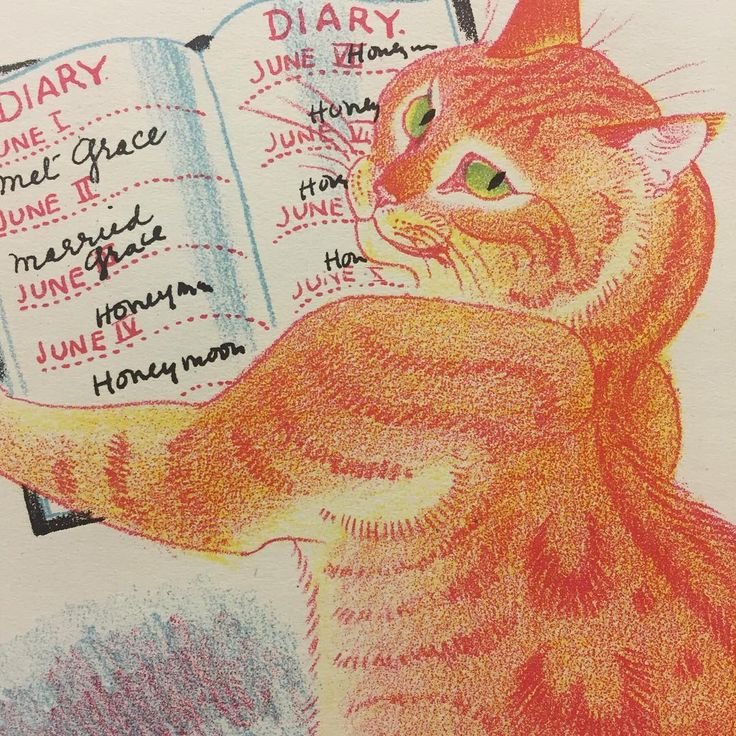 DIARY.
UNE I
met Grace
JUNE II
married
Grace
JUNE
Honeymoon
JUNE IV
Honeymoon
DIARY.
JUNE
Honeym
Honey
JUNE
Hon
JUNE
Hon
JUNE